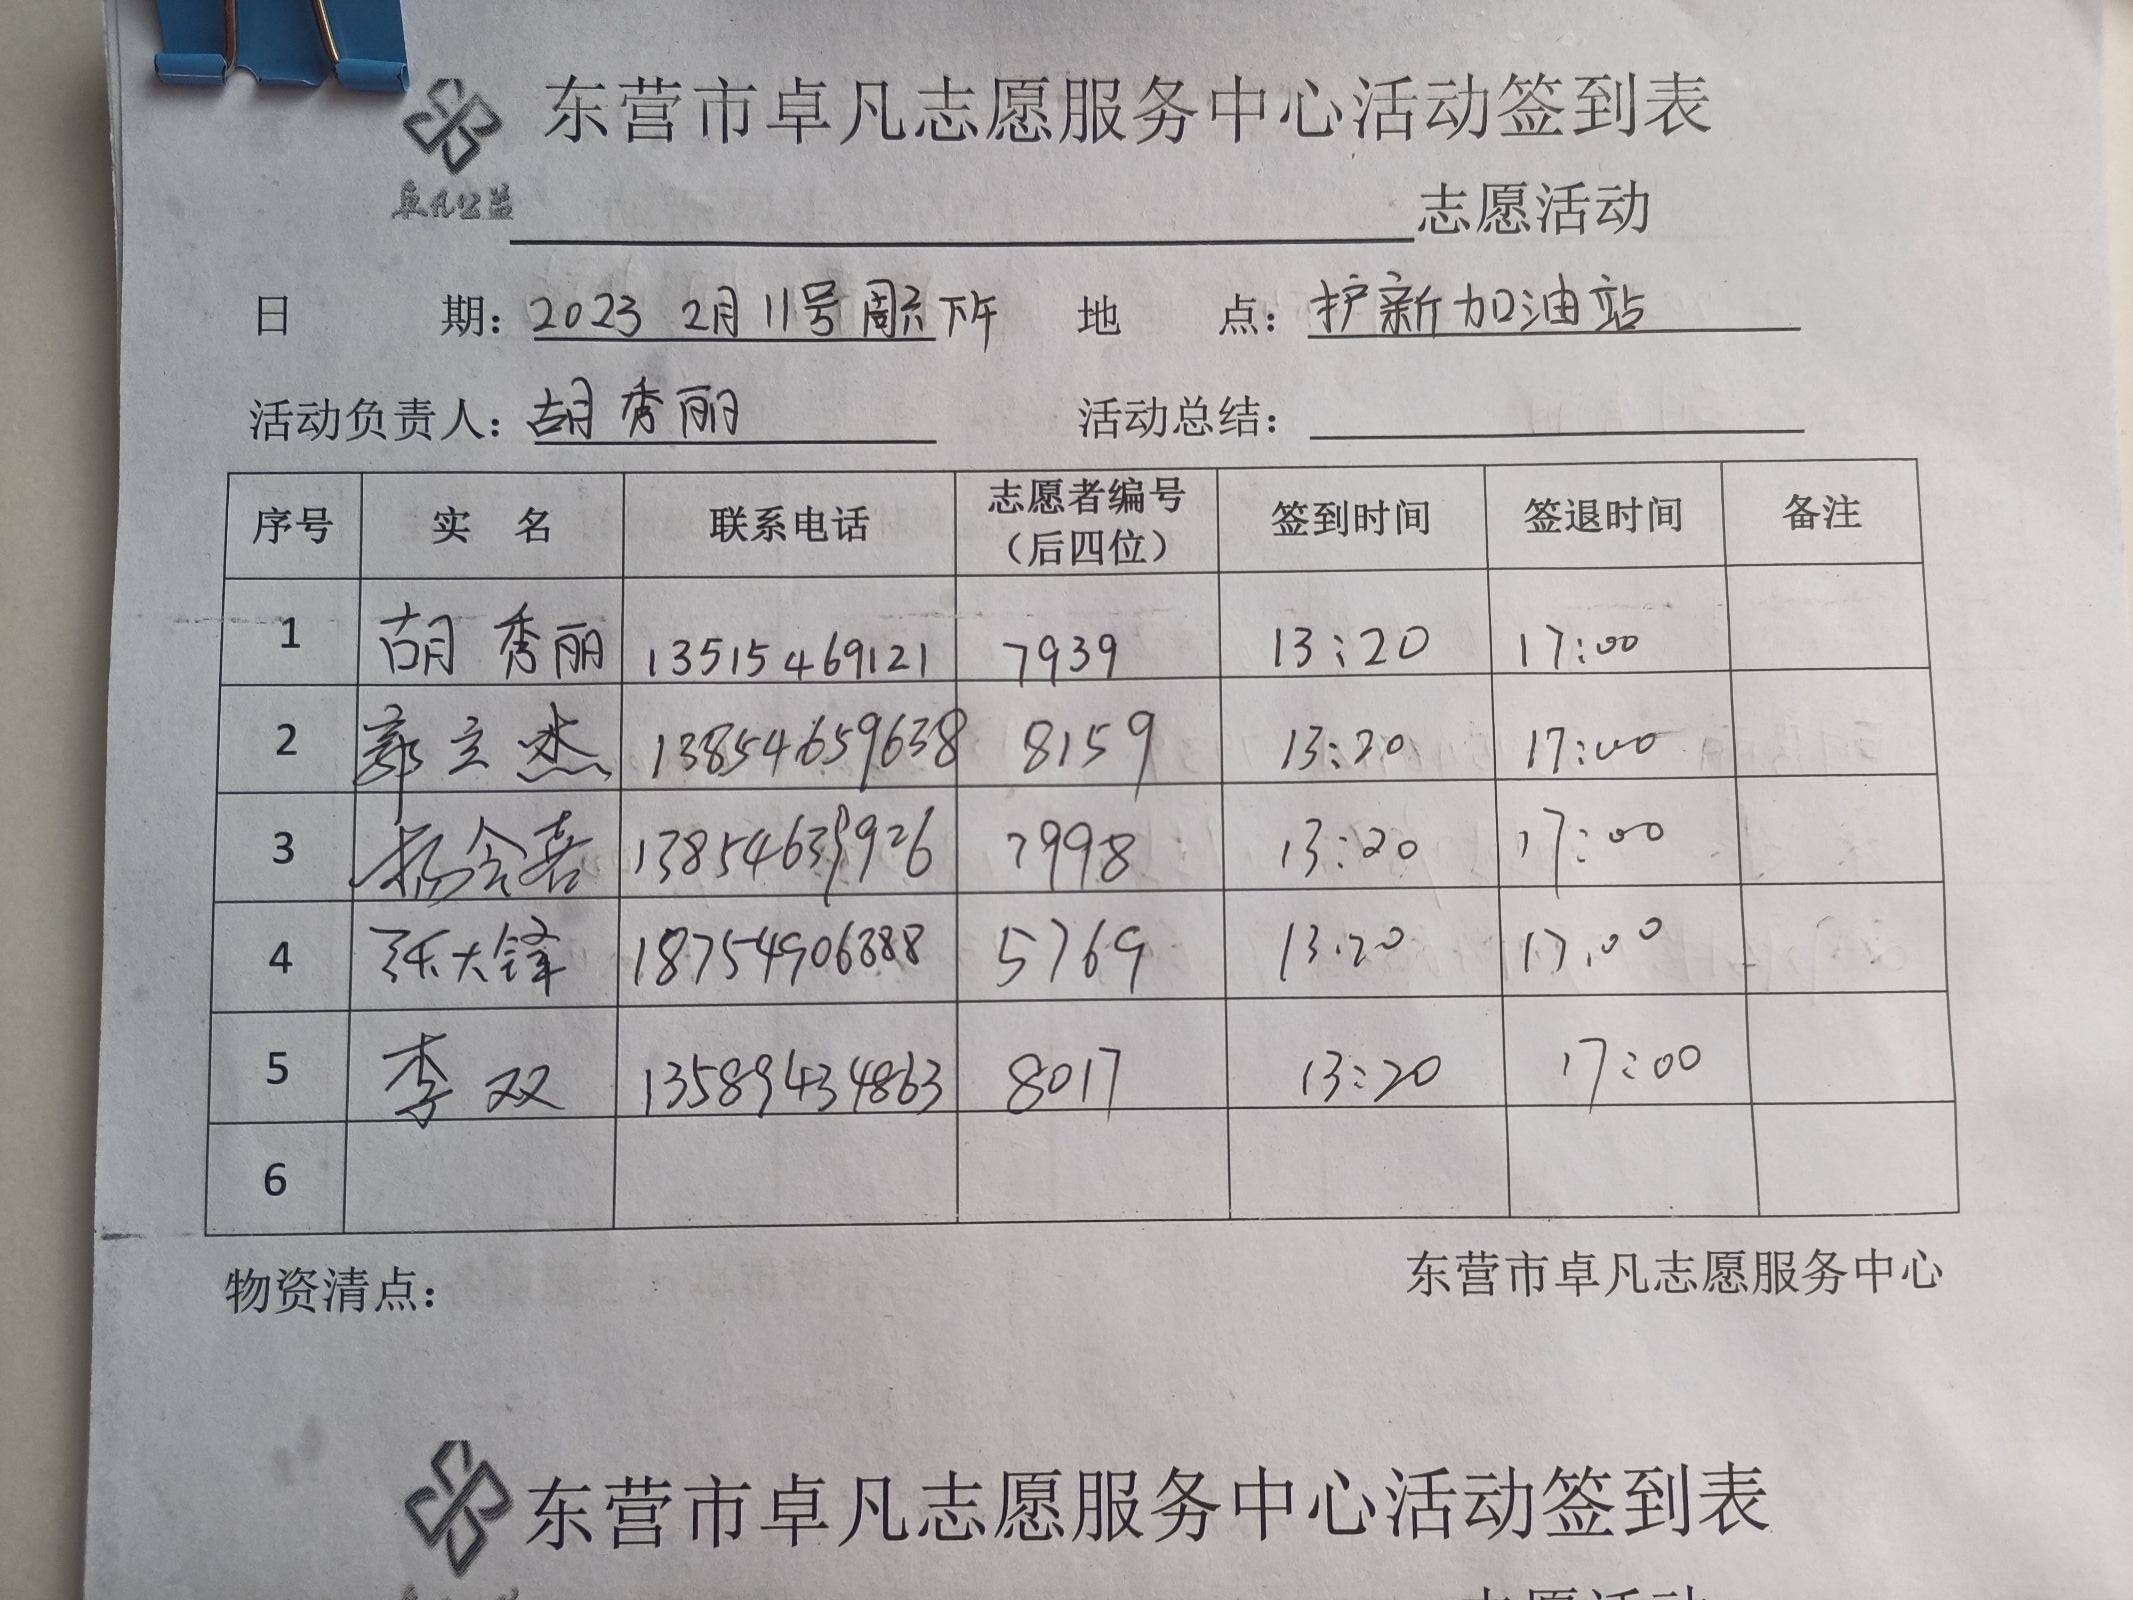 东营市卓凡志愿服务中心活动签到表
卓凡公益
志愿活动
日期：2023 2月11号周六下午 地点：护新加油站
活动负责人：胡秀丽 活动总结：
序号 实名 联系电话 志愿者编号（后四位） 签到时间 签退时间 备注
1 胡秀丽 13515469121 7939 13:20 17:00
2 郭立杰 13854659638 8159 13:20 17:00
3 杨会喜 13854639926 7998 13:20 17:00
4 张大锋 18754906888 5769 13.20 17.00
5 李双 13589434863 8017 13:20 17:00
6
物资清点： 东营市卓凡志愿服务中心
东营市卓凡志愿服务中心活动签到表
志愿活动